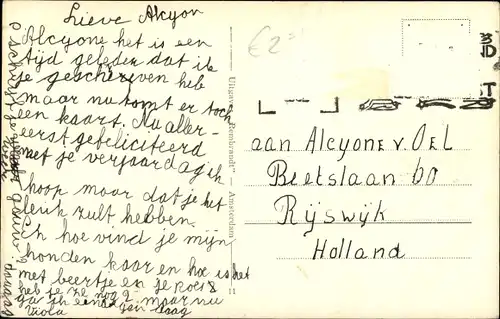 Lieve Alcyon
Alcyone het is een
tijd geleden dat ik
je geschreven heb
maar nu komt er toch
een kaart. Nu aller-
eerst gefeliciteerd
met je verjaardag ik
hoop maar dat je het
leuk zult hebben.
och hoe vind je mijn
honden kaar en hoe is het
met beertje en je poes 8
heb je ze nog?
ga ik eindi maar nu
Viola dag
schrijf je
gauw
€2
Uitgave „Rembrandt" — Amsterdam
aan Alcyone v. OEL
Beetslaan 60
Rijswijk
Holland